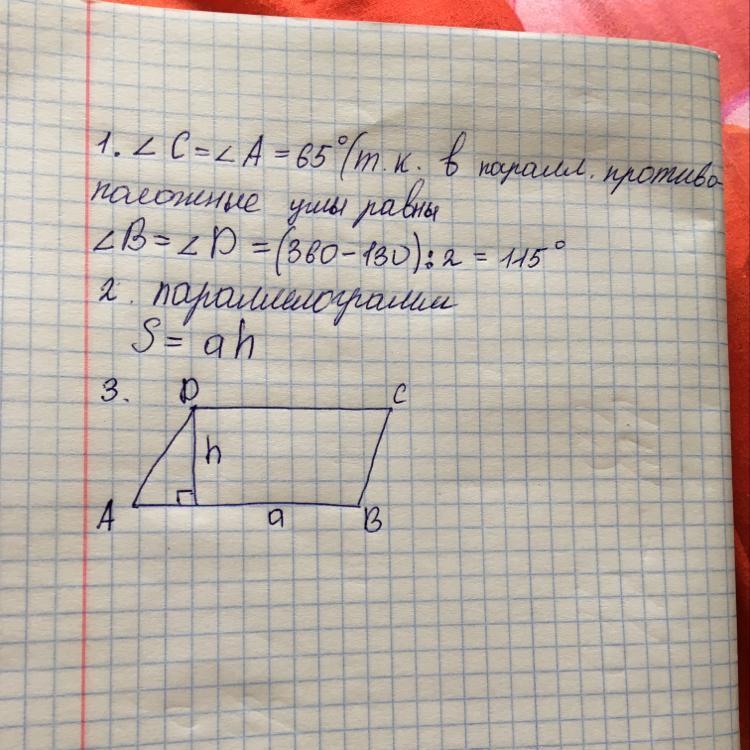 1. ∠ C = ∠ A = 65° (т.к. в паралл. противо-
положные углы равны
∠B = ∠D = (360 - 130) : 2 = 115°
2. параллелограмм
S = ah
3. D C
h
A a B